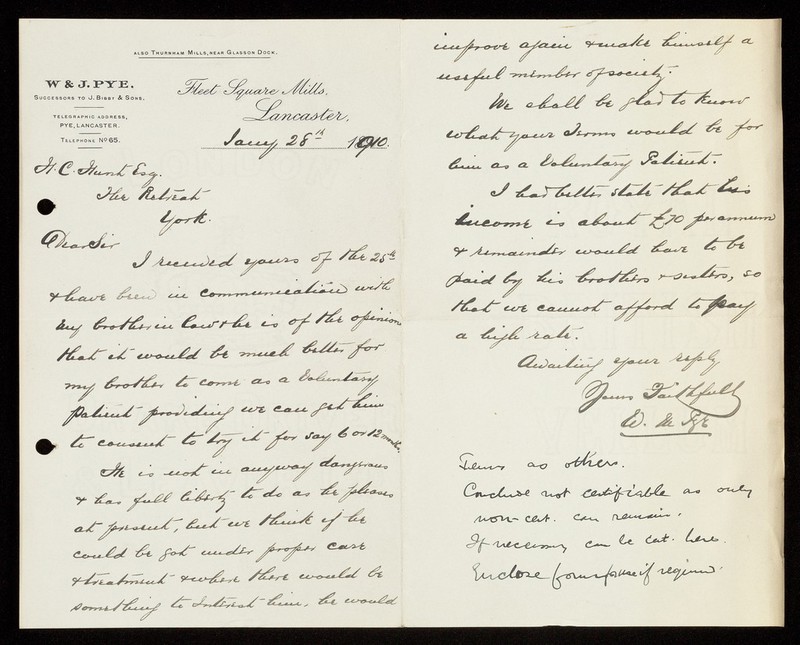 ALSO THURNHAM MILLS, NEAR GLASSON DOCK.
W & J. PYE.
SUCCESSORS TO J. BIBBY & SONS.
TELEGRAPHIC ADDRESS,
PYE, LANCASTER.
TELEPHONE Nº 65.
Fleet Square Mills,
Lancaster,
Jany 28th 1910.
H. C. Hunt Esq.
The Retreat
York.
Dear Sir
I received yours of the 25th
& have been in communication with
my brother in law & he is of the opinion
that it would be much better for
my brother to come as a Voluntary
Patient providing we can get him
to consent to try it for say 6 or 12 months.
He is not in anyway dangerous
& has full liberty to do as he pleases
at present, but we think if he
could be got under proper care
& treatment & where there would be
something to Interest him, he would
improve again & make himself a
useful member of society.
We shall be glad to know
what your Terms would be for
him as a Voluntary Patient.
I had better state that his
income is about £70 per annum
& remainder would have to be
paid by his brothers & sisters, so
that we cannot afford to pay
a high rate.
Awaiting your reply
Yours Faithfully
W. Pye
Terms as others.
Conclude not certifiable as only
non-cert. can remain.
If necessary can be cert. here.
Enclose form if required.